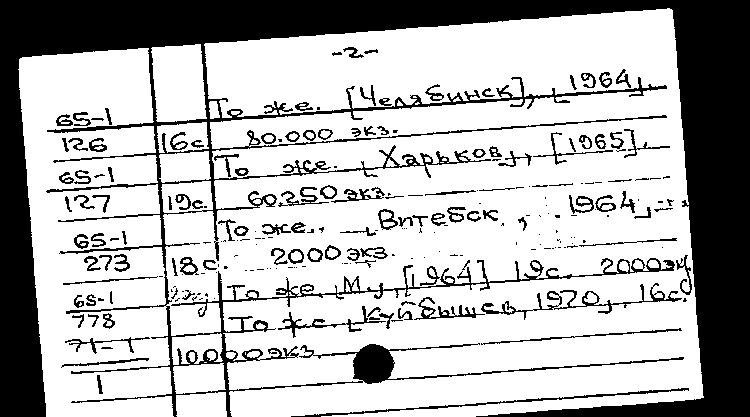 -2-
65-1 То же. [Челябинск], [1964].
126 16с. 80.000 экз.
65-1 То же. [Харьков], [1965].
127 19с. 60.250 экз.
65-1 То же. [Витебск, 1964]
273 18с. 2000 экз.
65-1 То же. [М.], [1964] 19с. 2000 экз
778 То же. [Куйбышев, 1970]. 16с.
71-1 10.000 экз.
1